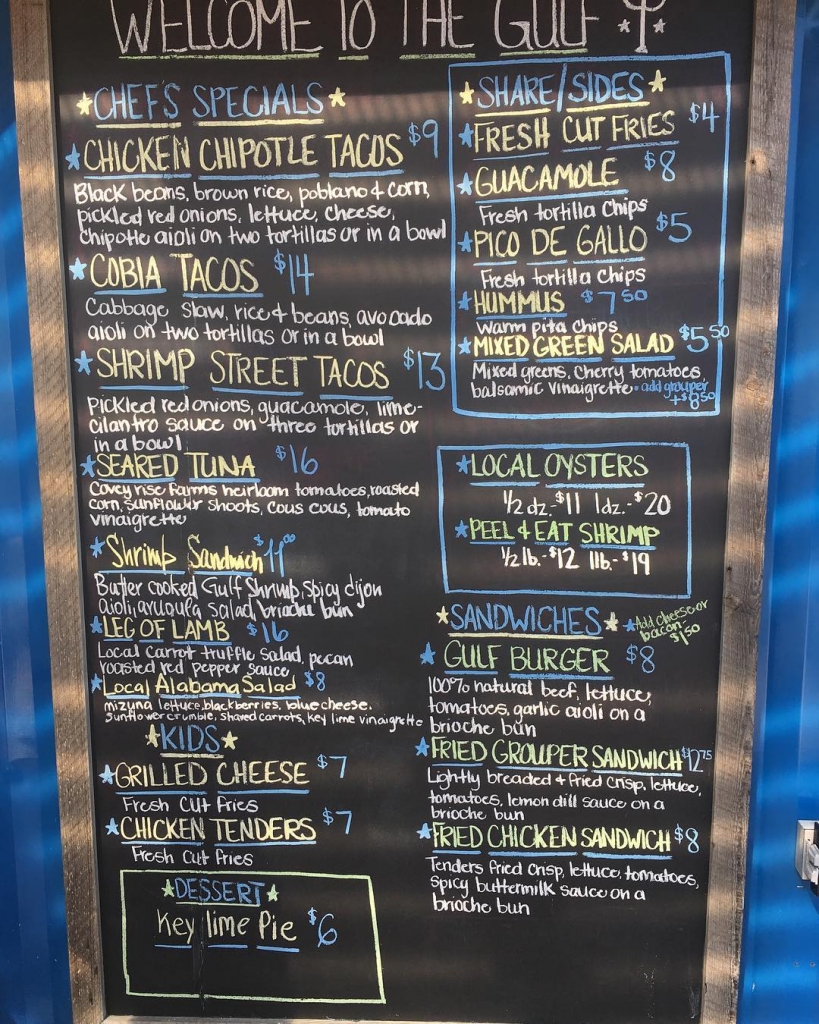 WELCOME TO THE GULF
CHEF'S SPECIALS
CHICKEN CHIPOTLE TACOS $9
Black beans, brown rice, poblano & corn,
pickled red onions, lettuce, cheese,
chipotle aioli on two tortillas or in a bowl
COBIA TACOS $14
Cabbage slaw, rice & beans, avocado
aioli on two tortillas or in a bowl
SHRIMP STREET TACOS $13
Pickled red onions, guacamole, lime-
cilantro sauce on three tortillas or
in a bowl
SEARED TUNA $16
Covey rise farms heirloom tomatoes, roasted
corn, sunflower shoots, cous cous, tomato
vinaigrette
Shrimp Sandwich $11.00
Butter cooked Gulf Shrimp, spicy dijon
aioli, arugula salad, brioche bun
LEG OF LAMB $16
Local carrot truffle salad, pecan
roasted red pepper sauce
Local Alabama Salad $8
mizuna lettuce, blackberries, blue cheese,
sunflower crumble, shaved carrots, key lime vinaigrette
KIDS
GRILLED CHEESE $7
Fresh cut fries
CHICKEN TENDERS $7
Fresh cut fries
DESSERT
Key lime Pie $6
SHARE/SIDES
FRESH CUT FRIES $4
GUACAMOLE $8
Fresh tortilla chips
PICO DE GALLO $5
Fresh tortilla chips
HUMMUS $7 50
warm pita chips
MIXED GREEN SALAD $5 50
Mixed greens, cherry tomatoes,
balsamic vinaigrette - add grouper
+$8 50
LOCAL OYSTERS
1/2 dz.-$11 1dz.-$20
PEEL & EAT SHRIMP
1/2 lb.-$12 1lb.-$19
SANDWICHES
Add cheese or
bacon-
$1.50
GULF BURGER $8
100% natural beef, lettuce,
tomatoes, garlic aioli on a
brioche bun
FRIED GROUPER SANDWICH $12.75
Lightly breaded & fried crisp, lettuce,
tomatoes, lemon dill sauce on a
brioche bun
FRIED CHICKEN SANDWICH $8
Tenders fried crisp, lettuce, tomatoes,
spicy buttermilk sauce on a
brioche bun